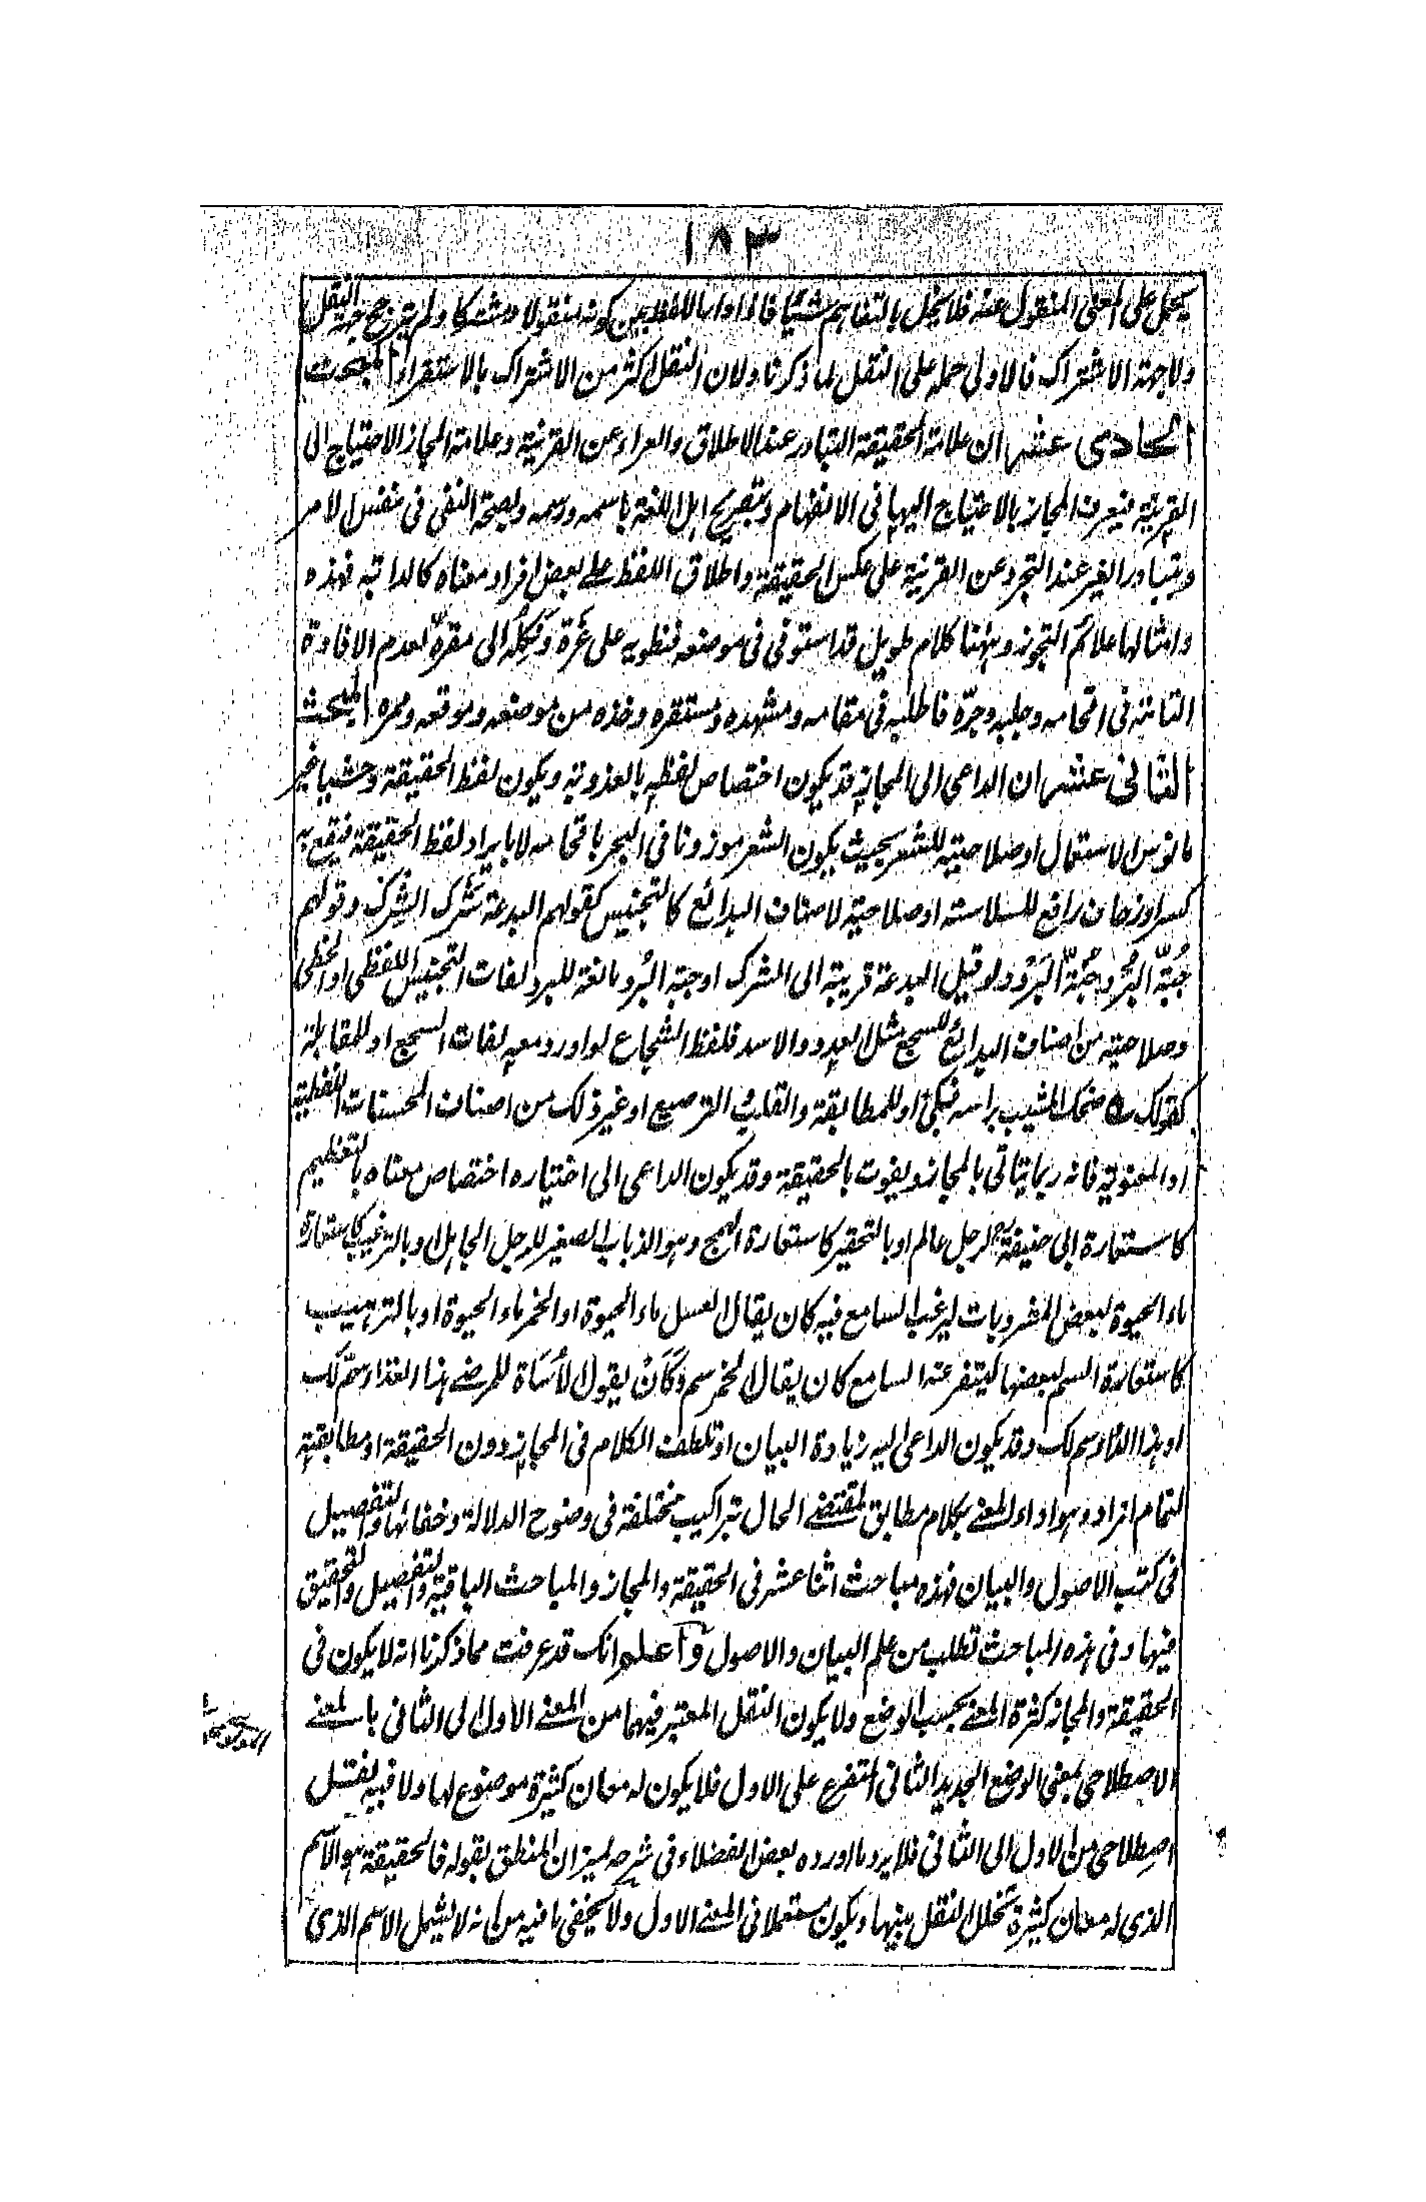 ١٨٣
يحمل على المعنى المنقول عنه فلا يخل بالتفاهم شيئا فاذا دار اللفظ بين كونه منقولا ومشتركا ولم يترجح جهة النقل
ولا جهة الاشتراك فالاولى حمله على النقل لما ذكرنا ولان النقل اكثر من الاشتراك بالاستقراء المبحث
الحادى عشر ان علامة الحقيقة التبادر عند الاطلاق والعراء عن القرنية وعلامة المجاز الاحتياج الى
القرنية فيعرف المجاز بالاحتياج اليها فى الانفهام وبتصريح اهل اللغة باسمه ورسمه وبصحة النفى فى نفس الامر
وبتبادر الغير عند التجرد عن القرنية على عكس الحقيقة واطلاق اللفظ على بعض افراد معناه كالدابة فهذه
وامثالها علائم التجوز وههنا كلام طويل قد استوفى فى موضعه فنطويه على غرة ونكله الى مقره لعدم الافادة
التامة فى اقحامه وجلبه وجره فاطلبه فى مقامه ومشهده ومستقره وخذه من موضعه وموقعه وممره المبحث
الثانى عشر ان الداعى الى المجاز قد يكون اختصاص لفظه بالعذوبة ويكون لفظ الحقيقة وحشيا غير
مانوس الاستعمال او صلاحيته للشعر بحيث يكون الشعر موزونا فى البحر باقحامه لا بايراد لفظ الحقيقة فيقع به
كسر او زحاف رافع للسلاسة او صلاحيته لاصناف البدائع كالتجنيس كقولهم البدعة شرك الشرك وقولهم
جبة البرد جنة البرد ولو قيل البدعة قريبة الى الشرك او جبة البرد مانعة للبرد لفات التجنيس اللفظى او الخطى
وصلاحيته من اصناف البدائع للسجع مثل العدو والاسد فلفظ الشجاع لو اورد معه لفات السجع او للمقابلة
كقولك ضحك المشيب براسه فبكى او للمطابقة والقلب الترصيع او غير ذلك من اصناف المحسنات اللفظية
او المعنوية فانه ربما يتاتى بالمجاز ويفوت بالحقيقة وقد يكون الداعى الى اختياره اختصاص معناه بالتعظيم
كاستعارة ابى حنيفة لرجل عالم او بالتحقير كاستعارة الهمج وهو الذباب الصغير للرجل الجاهل او بالترغيب كاستعارة
ماء الحيوة لبعض المشروبات ليرغب السامع فيه كان يقال العسل ماء الحيوة او الخمر ماء الحيوة او بالترهيب
كاستعارة السم لبعضها ليتنفر عنه السامع كان يقال الخمر سم وكان يقول الاساة للمرضى هذا الغذاء سم لك
او هذا الدواء سم لك وقد يكون الداعى اليه زيادة البيان او تلطف الكلام فى المجاز دون الحقيقة او مطابقته
لتمام المراد وهو اداء المعنى بكلام مطابق لمقتضى الحال بتراكيب مختلفة فى وضوح الدلالة وخفائها والتفصيل
فى كتب الاصول والبيان فهذه مباحث اثنا عشر فى الحقيقة والمجاز والمباحث الباقية والتفصيل والتحقيق
فيها وفى هذه المباحث تطلب من علم البيان والاصول واعلم انك قد عرفت مما ذكرنا انه لا يكون فى
الحقيقة والمجاز كثرة المعنى بحسب الوضع ولا يكون النقل المعتبر فيهما من المعنى الاول الى الثانى بالمعنى
الاصطلاحى بمعنى الوضع الجديد الثانى المتفرع على الاول فلا يكون له معان كثيرة موضوع لها ولا فيه نقل
اصطلاحى من الاول الى الثانى فلا يرد ما اورده بعض الفضلاء فى شرحه لميزان المنطق بقوله فالحقيقة هو الاسم
الذى له معان كثيرة تخلل النقل بينها ويكون مستعملا فى المعنى الاول ولا يخفى ما فيه من انه لا يشمل الاسم الذى